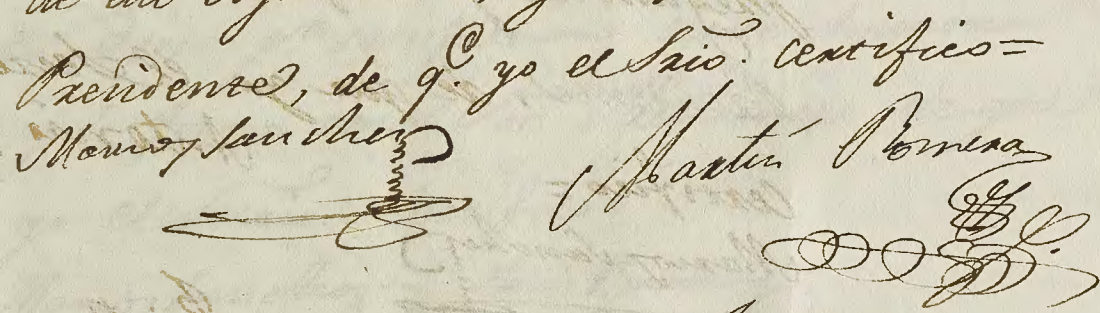 Presidente, de q.e yo el Srio. certifico=
Sanchez Martin Romera
S.